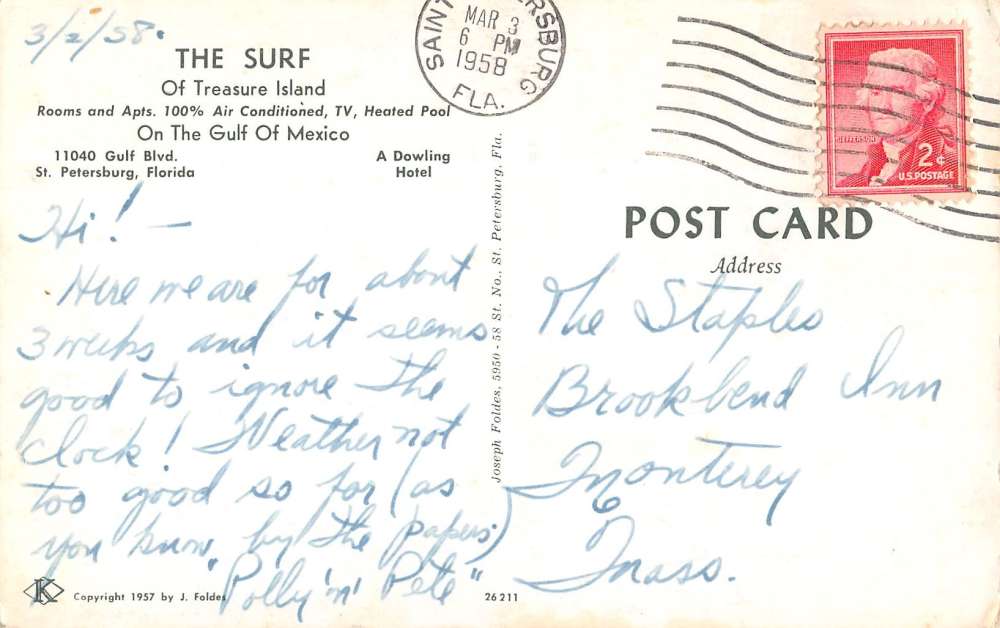 3/2/58.
THE SURF
Of Treasure Island
Rooms and Apts. 100% Air Conditioned, TV, Heated Pool
On The Gulf Of Mexico
11040 Gulf Blvd.
St. Petersburg, Florida
A Dowling
Hotel
Hi! —
Here we are for about
3 weeks and it seems
good to ignore the
clock! Weather not
too good so far (as
you know by the papers)
"Polly 'n' Pete"
K
Copyright 1957 by J. Foldes
26211
Joseph Foldes, 5950 - 58 St. No., St. Petersburg, Fla.
MAR 3
6 PM
1958
FLA.
JEFFERSON
2¢
U.S. POSTAGE
POST CARD
Address
The Staples
Brookbend Inn
Monterey
Mass.